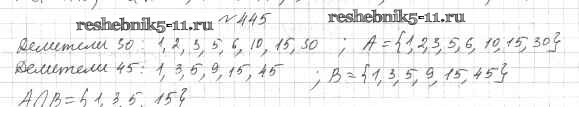 reshebnik5-11.ru №445 reshebnik5-11.ru
Делители 30: 1, 2, 3, 5, 6, 10, 15, 30 ; A = {1,2,3,5,6,10,15,30}
Делители 45: 1, 3, 5, 9, 15, 45 ; B = {1,3,5,9,15,45}
A∩B = {1, 3, 5, 15}